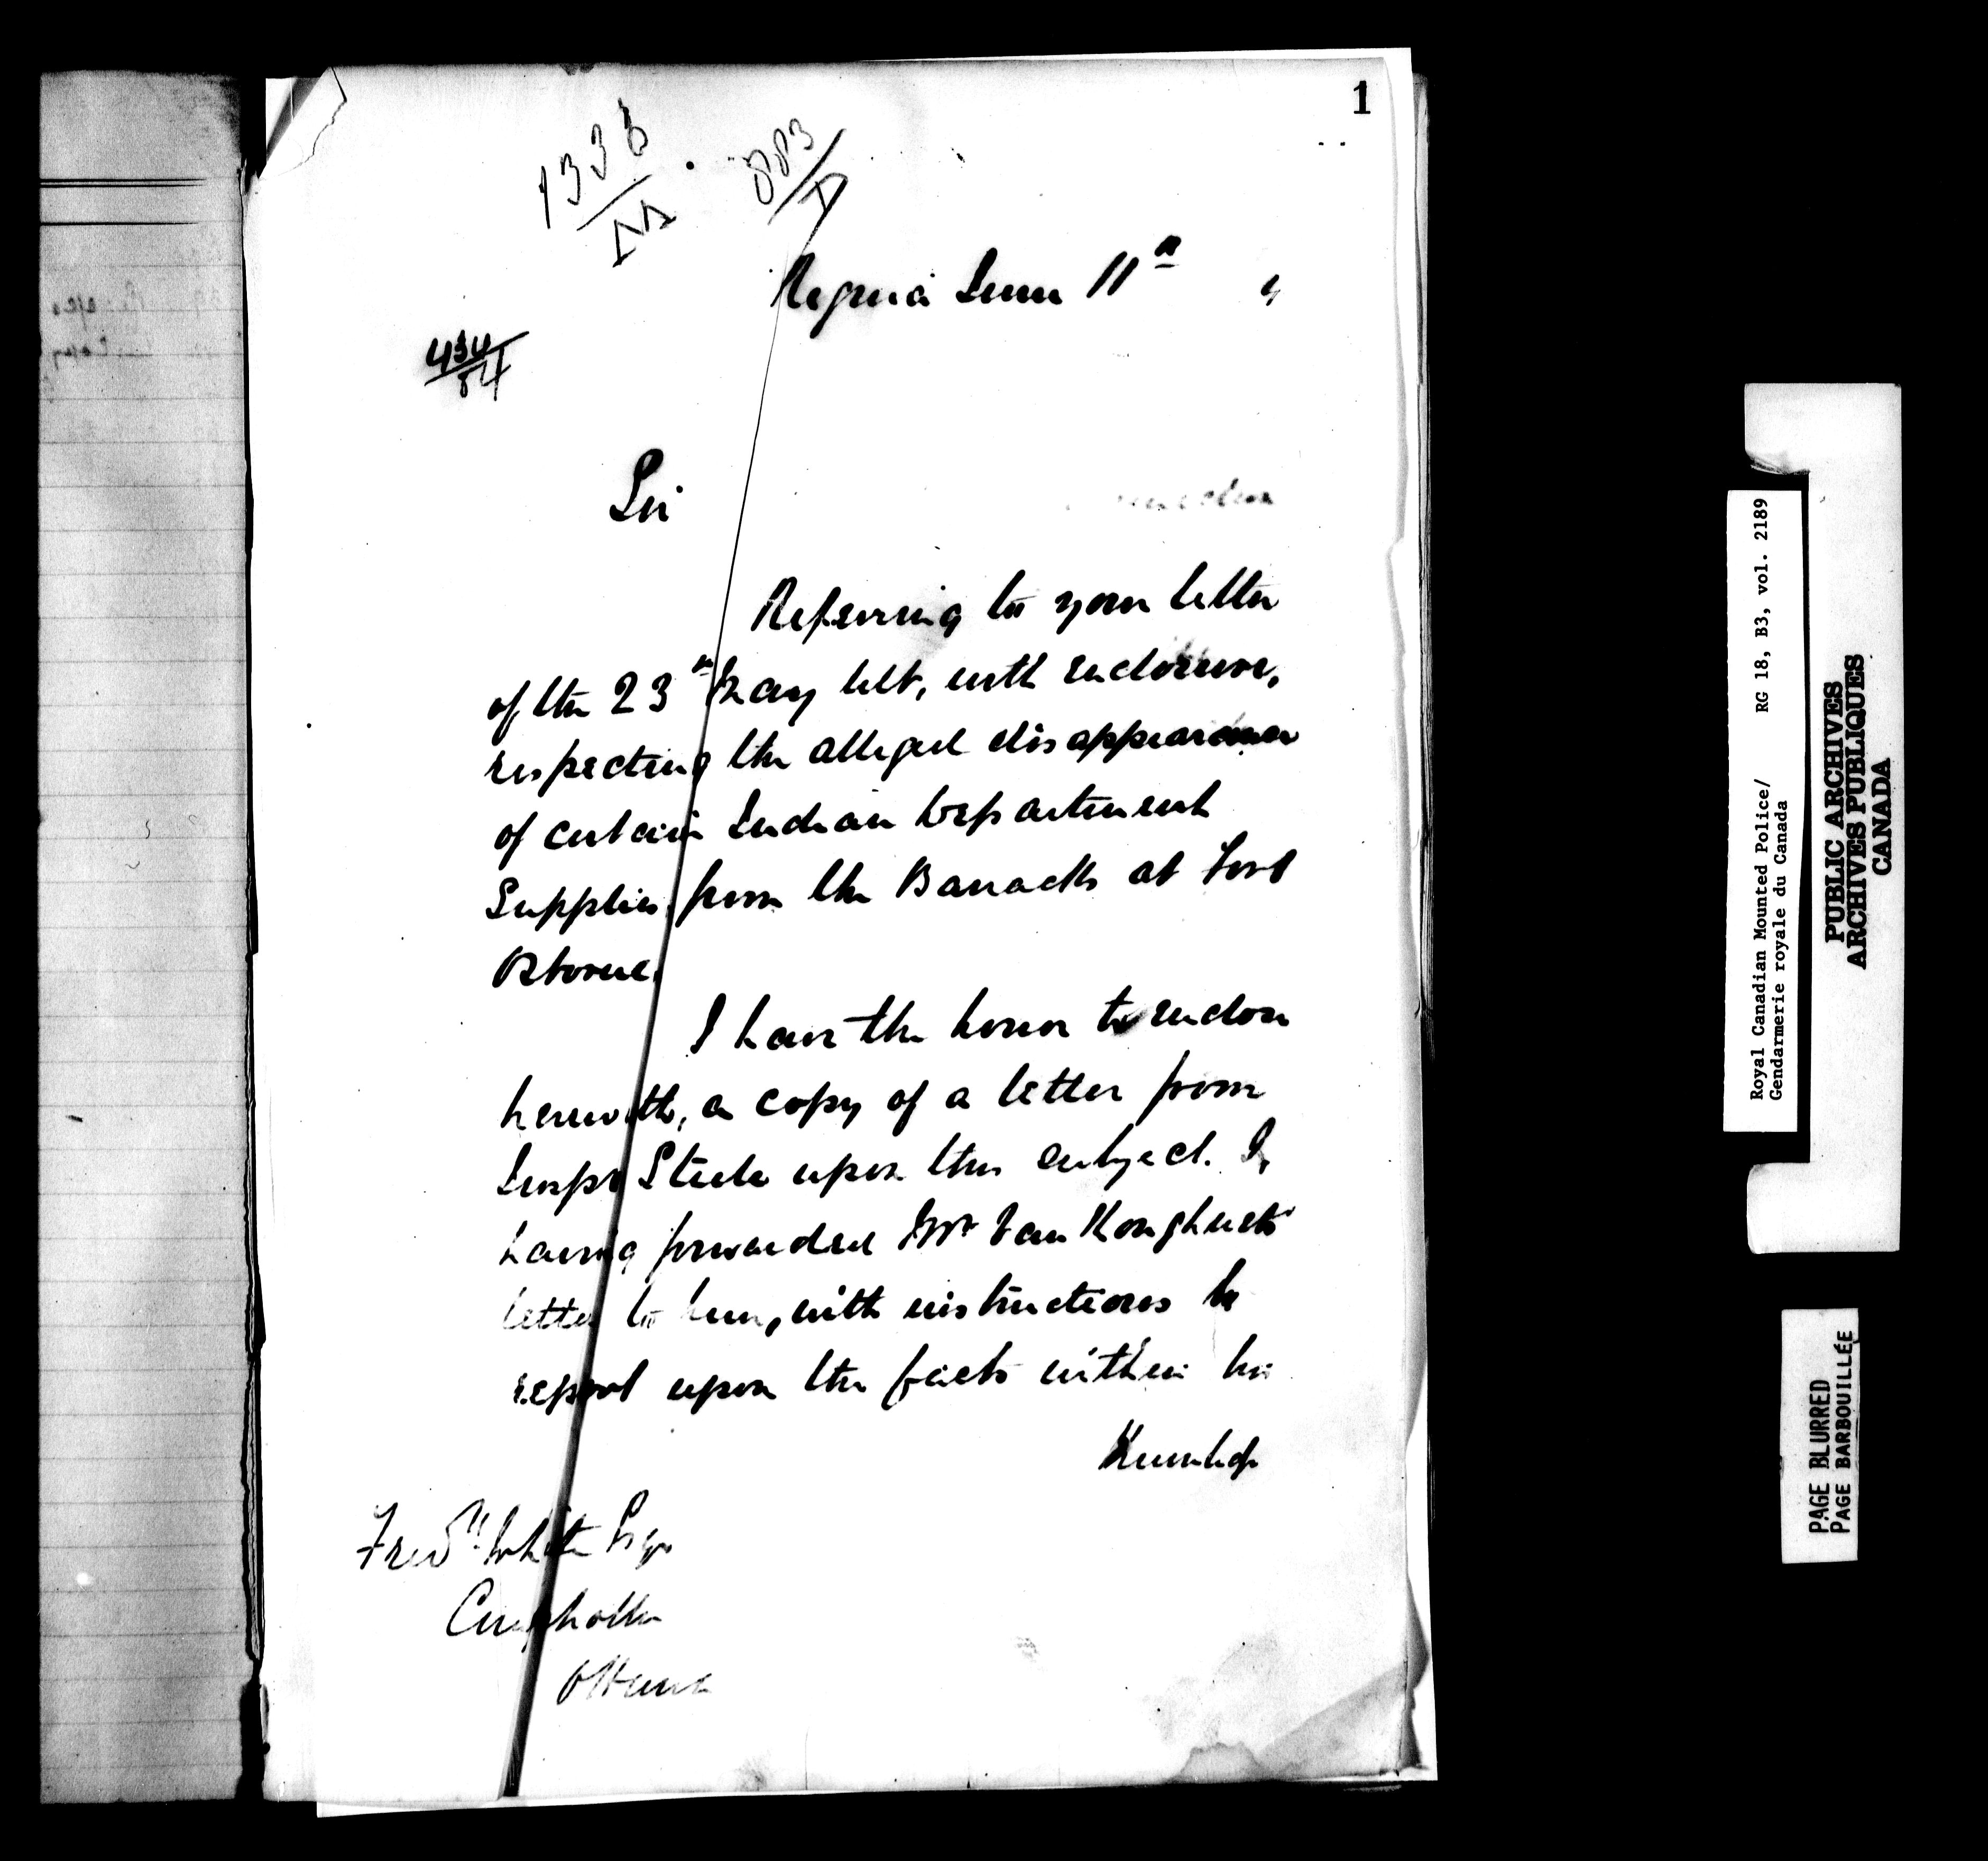 1
1338
883
434
84
Regina June 11th
Sir
Referring to your letter
of the 23rd May ult, with enclosure,
respecting the alleged disappearance
of certain Indian Department
Supplies from the Barracks at Fort
Osborne.
I have the honor to enclose
herewith, a copy of a letter from
Inspr Steele upon this subject. I,
having forwarded Mr Van Koughnets
letter to him, with instructions to
report upon the facts within his
Knowledge
Fredk White Esqr
Comptroller
Ottawa
Royal Canadian Mounted Police/ RG 18, B3, vol. 2189
Gendarmerie royale du Canada
PUBLIC ARCHIVES
ARCHIVES PUBLIQUES
CANADA
PAGE BLURRED
PAGE BARBOUILLÉE